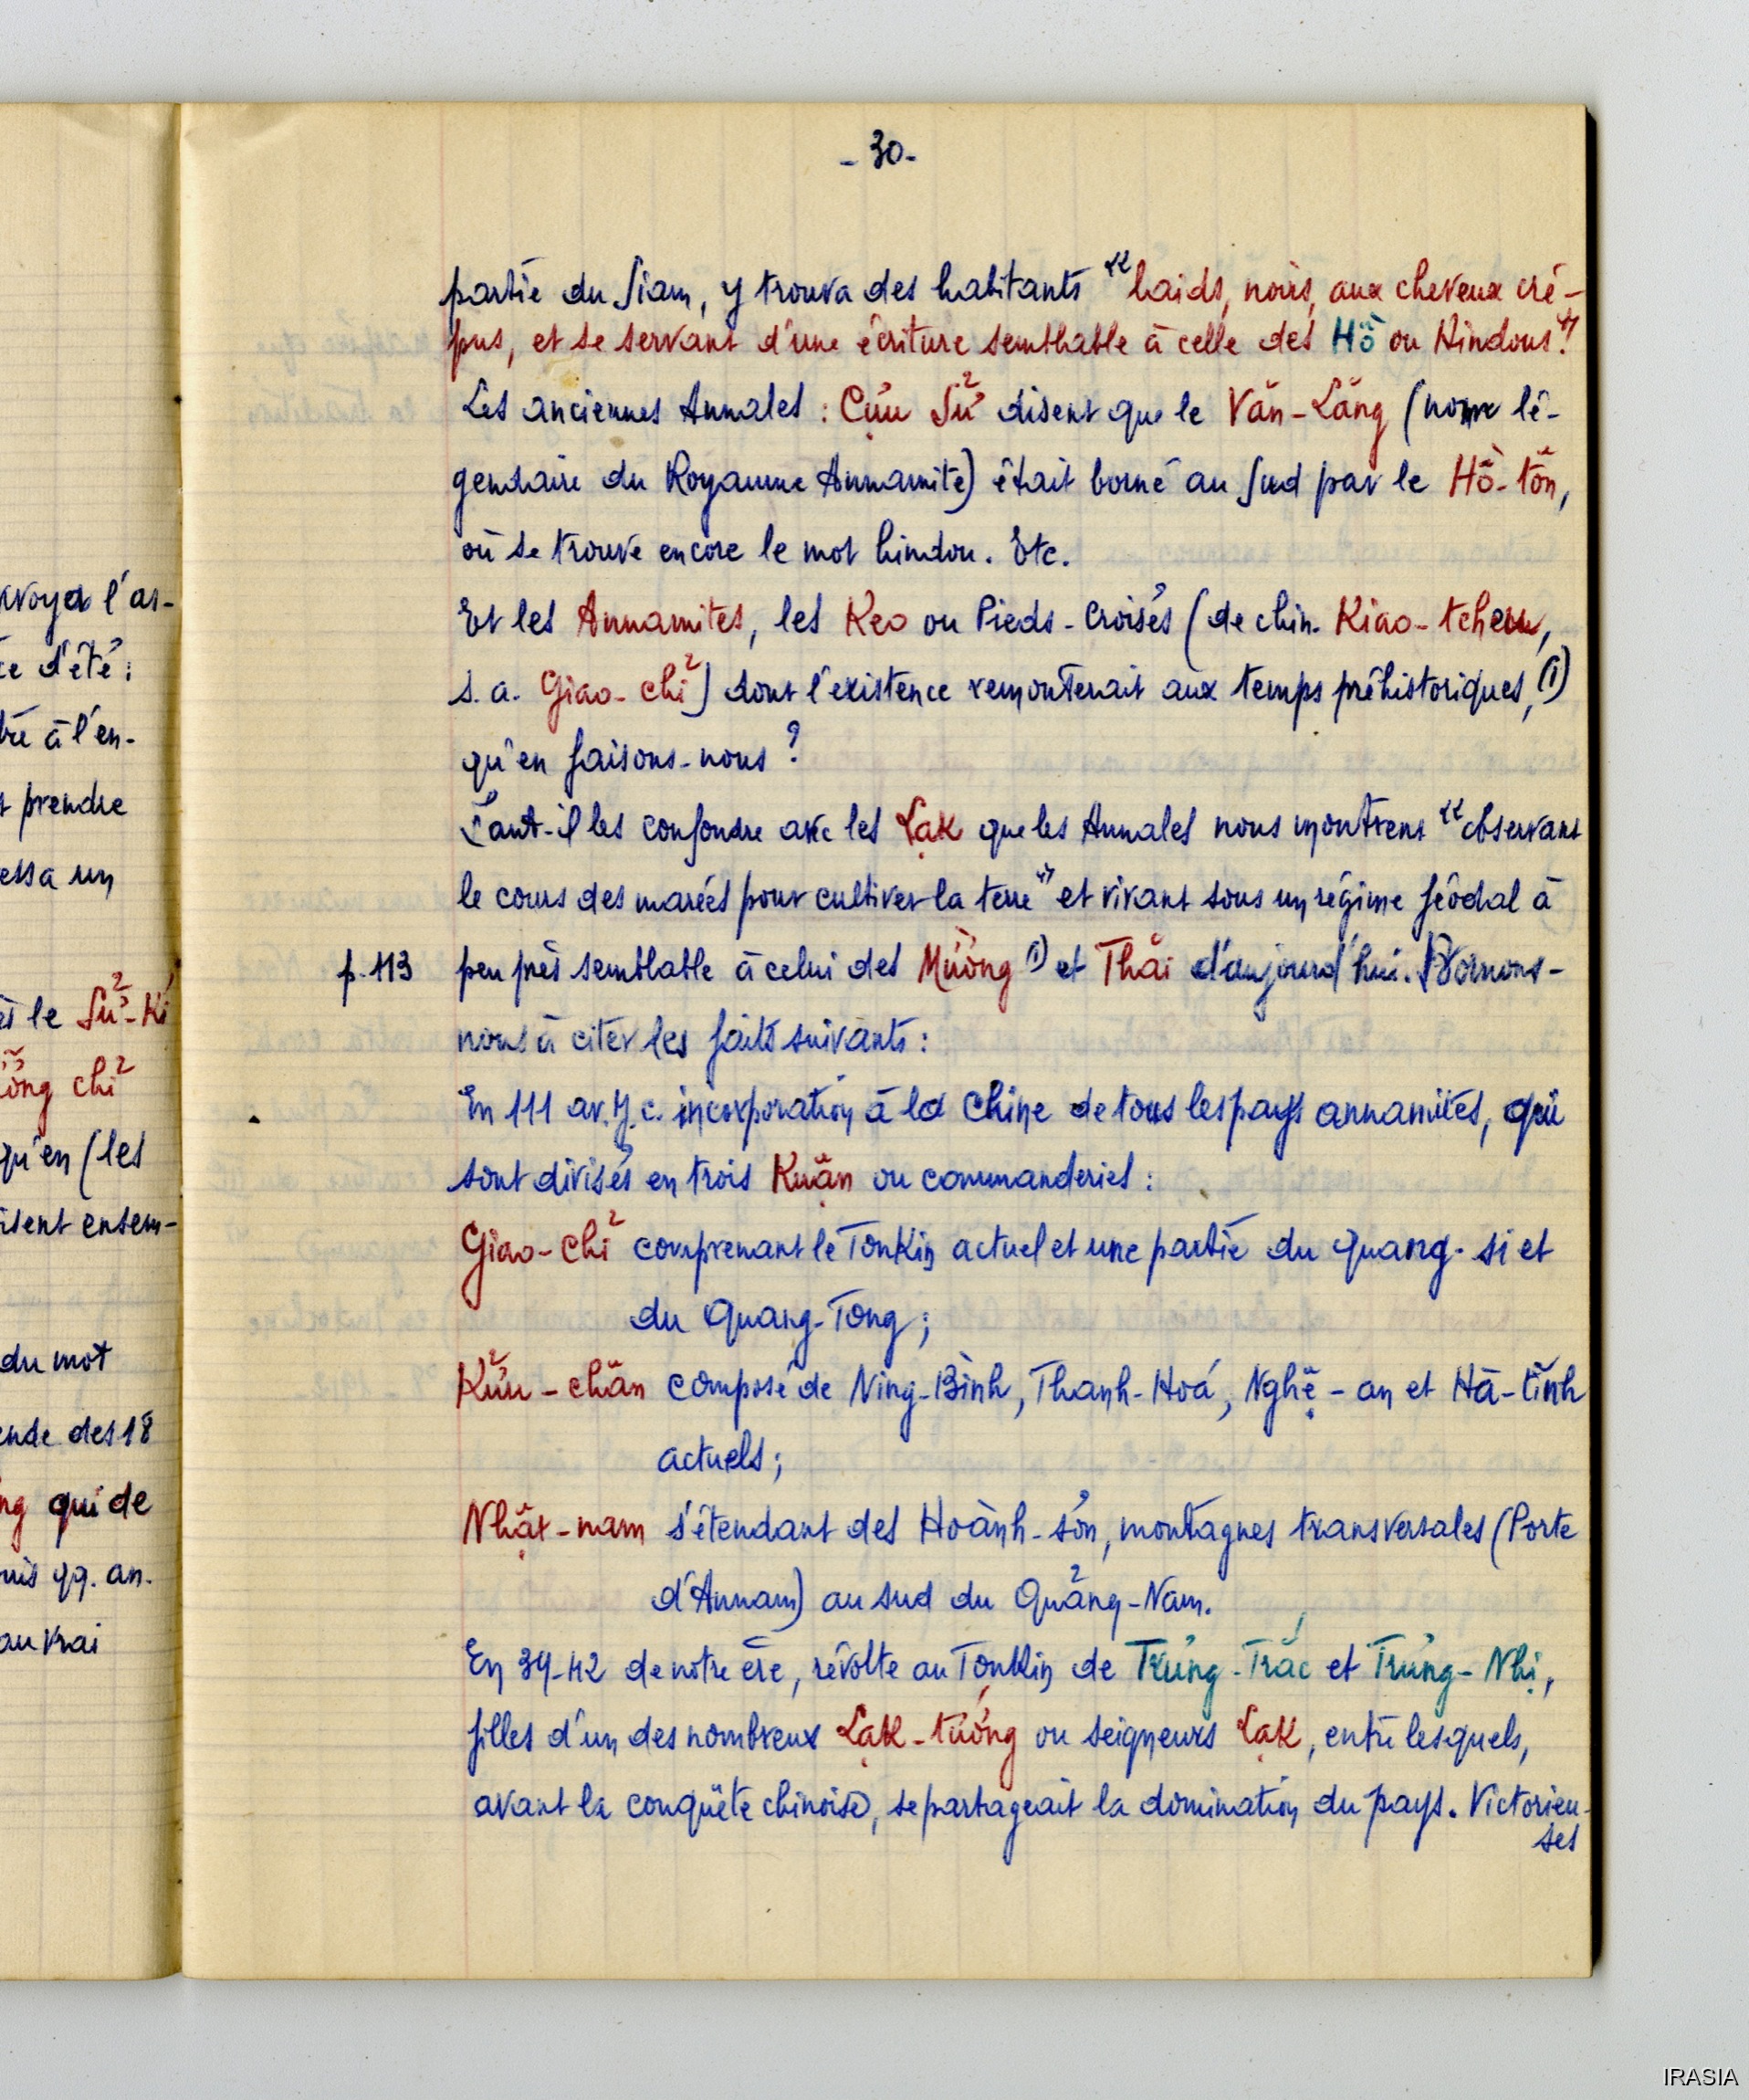 - 30 -
partie du Siam, y trouva des habitants "laids, noirs, aux cheveux cré-
pus, et se servant d'une écriture semblable à celle des Hồ ou Hindous".
Les anciennes Annales : Cựu Sử disent que le Văn-Lăng (nom lé-
gendaire du Royaume Annamite) était borné au Sud par le Hồ-tôn,
où se trouve encore le mot hindou. Etc.
Et les Annamites, les Keo ou Pieds-Croisés (de chin. Kiao-tcheu,
s.a. Giao-chỉ) dont l'existence remonterait aux temps préhistoriques, (1)
qu'en faisons-nous ?
Faut-il les confondre avec les Lạk que les Annales nous montrent "observant
le cours des marées pour cultiver la terre" et vivant sous un régime féodal à
p. 113 peu près semblable à celui des Mường (1) et Thái d'aujourd'hui. Bornons-
nous à citer les faits suivants :
En 111 av. J.c. incorporation à la Chine de tous les pays annamites, qui
sont divisés en trois Kuận ou commanderies :
Giao-chỉ comprenant le Tonkin actuel et une partie du Quang-si et
du Quang-Tong ;
Kửu-chân composé de Ning-Bình, Thanh-Hoá, Nghệ-an et Hà-tĩnh
actuels ;
Nhật-nam s'étendant des Hoành-sơn, montagnes transversales (Porte
d'Annam) au sud du Quảng-Nam.
En 39-42 de notre ère, révolte au Tonkin de Trưng-Trắc et Trưng-Nhị,
filles d'un des nombreux Lạk-tướng ou seigneurs Lạk, entre lesquels,
avant la conquête chinoise, se partageait la domination du pays. Victorieu-
ses
voya l'as-
d'été :
à l'en-
prendre
essa un
le Sử-Kí
chỉ
qu'en (les
isent ensem-
du mot
des 18
ng qui de
qq. an.
au vrai
IRASIA